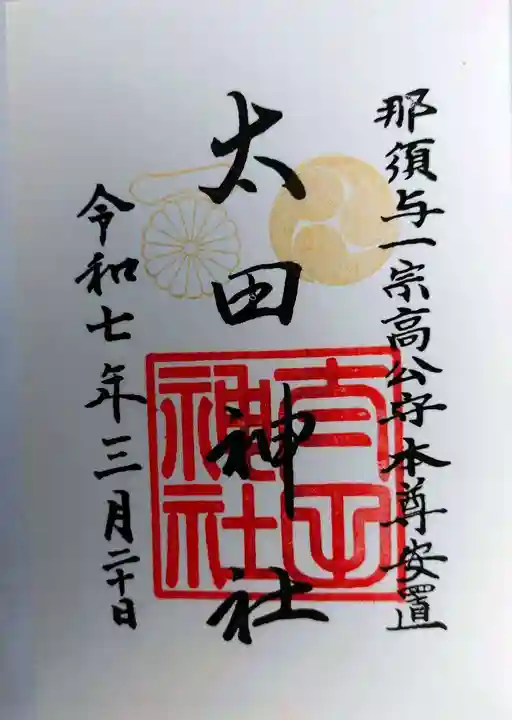 那須与一宗高公守本尊安置
太田神社
令和七年三月二十日
太田神社